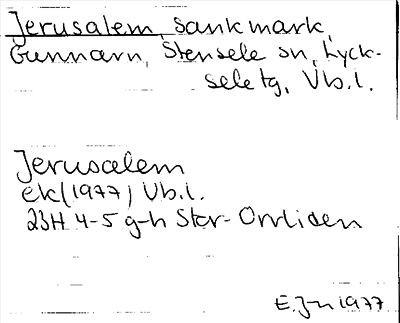 Jerusalem, sankmark,
Gunnarn, Stensele sn, Lyck-
sele tg, Vb.l.
Jerusalem
ek (1977) Vb.l.
23H 4-5 g-h Stor-Onliden
E.Jn 1977